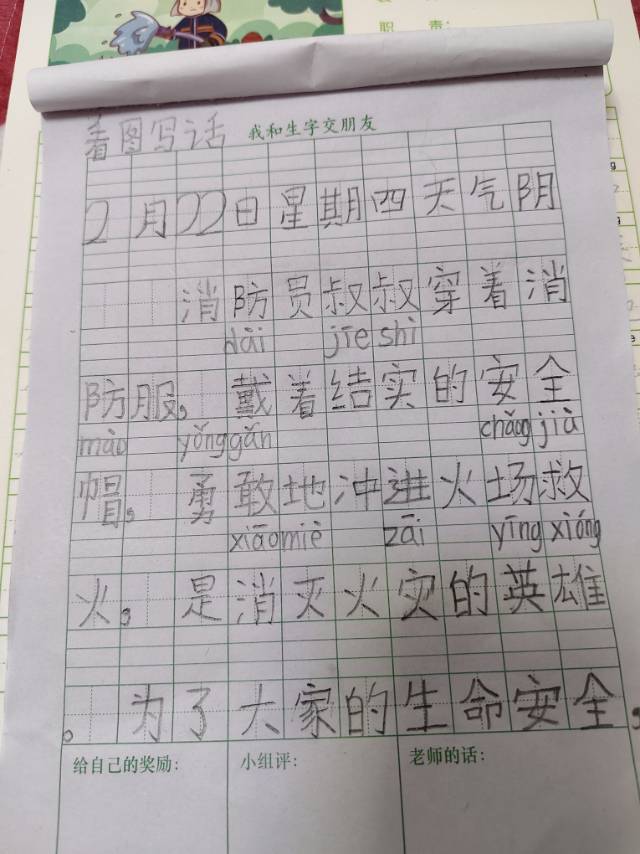 职 责:
看图写话 我和生字交朋友
2月22日星期四天气阴
消防员叔叔穿着消
dài jiē shí
防服，戴着结实的安全
mào yǒng gǎn chǎng jià
帽，勇敢地冲进火场救
xiāo miè zāi yīng xióng
火，是消灭火灾的英雄
。为了大家的生命安全，
给自己的奖励： 小组评： 老师的话：